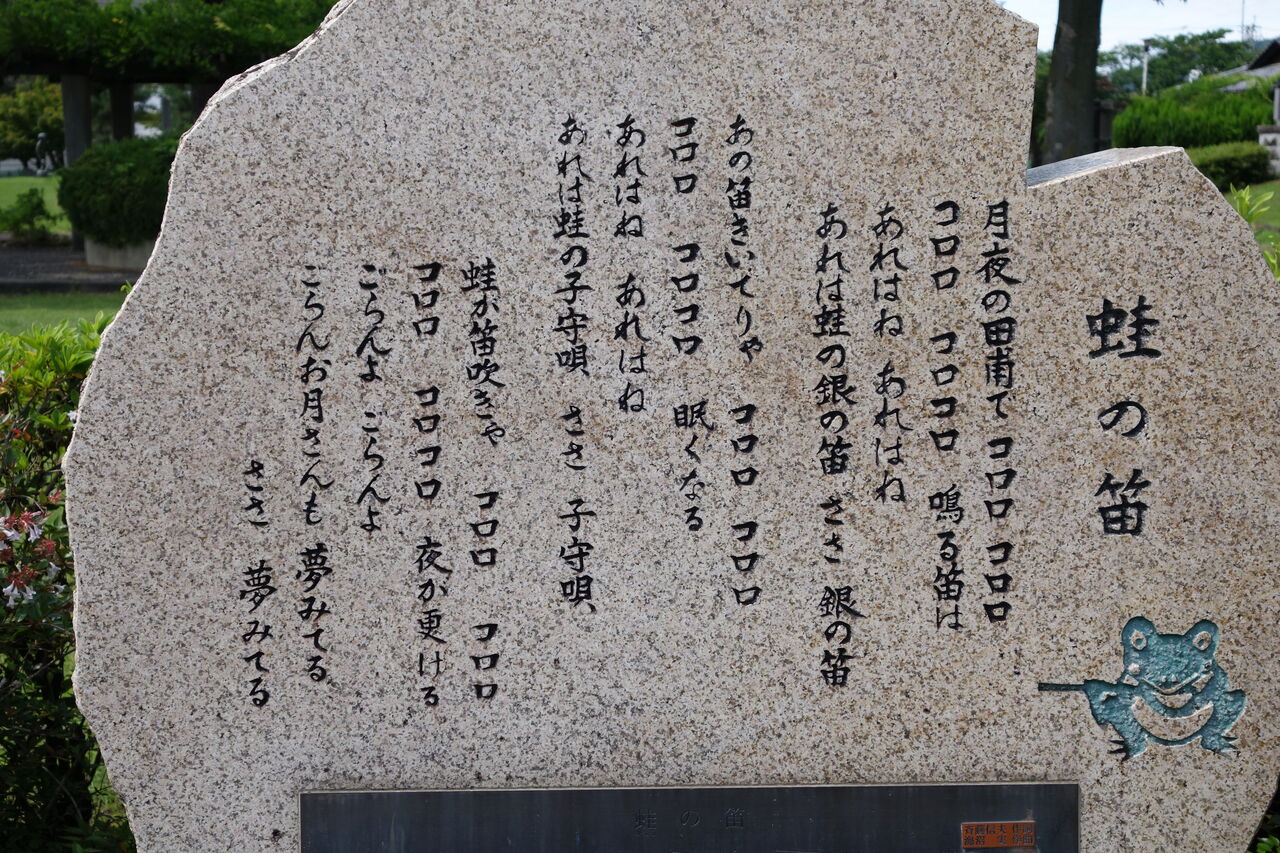 蛙の笛
月夜の田甫て コロロ コロロ
コロロ コロコロ 鳴る笛は
あれはね あれはね
あれは蛙の銀の笛 ささ 銀の笛
あの笛きいてりゃ コロロ コロロ
コロロ コロコロ 眠くなる
あれはね あれはね
あれは蛙の子守唄 ささ 子守唄、
蛙が笛吹きゃ コロロ コロロ
コロロ コロコロ 夜が更ける
ごらんよ ごらんよ
ごらんお月さんも 夢みてる
ささ 夢みてる
蛙の笛
斉藤信夫 作詞
海沼 実 作曲